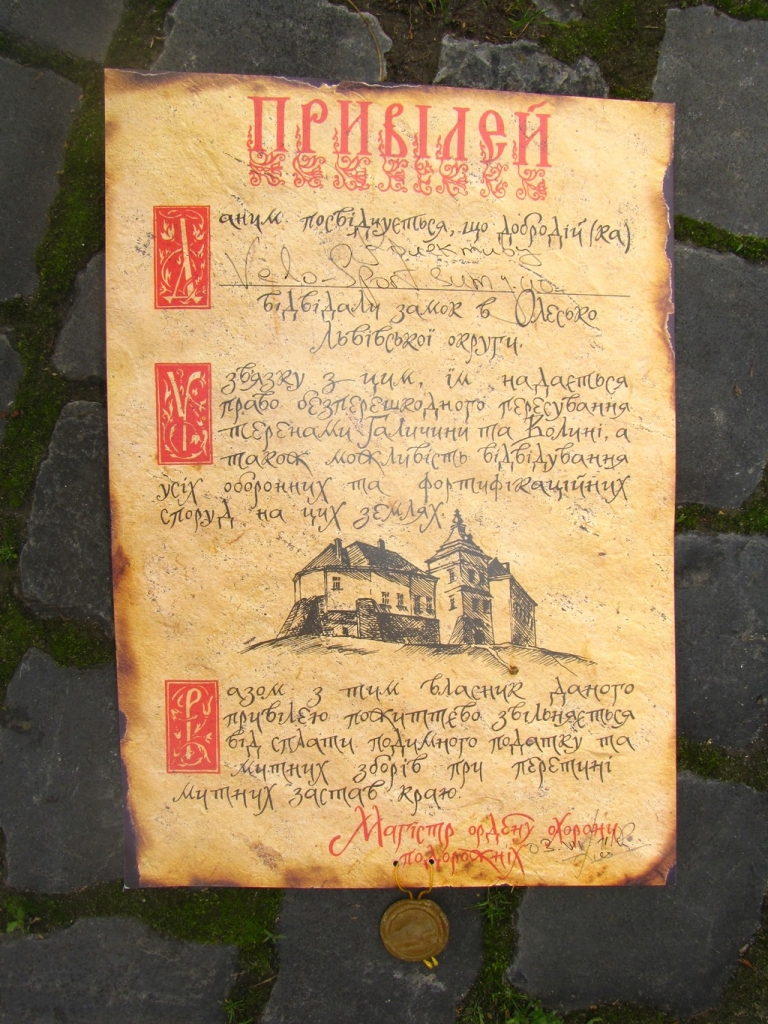 ПРИВІЛЕЙ
Даним посвідчується, що добродій(ка)
Velo-Sport
відвідали замок в Олесько
Львівської округи.
У звязку з цим, їм надається
право безперешкодного пересування
теренами Галичини та Волині, а
також можливість відвідування
усіх оборонних та фортифікаційних
споруд на цих землях.
Разом з тим власник даного
привілею пожиттєво звільняється
від сплати подимного податку та
митних зборів при перетині
митних застав краю.
Магістр ордену охорони
подорожніх